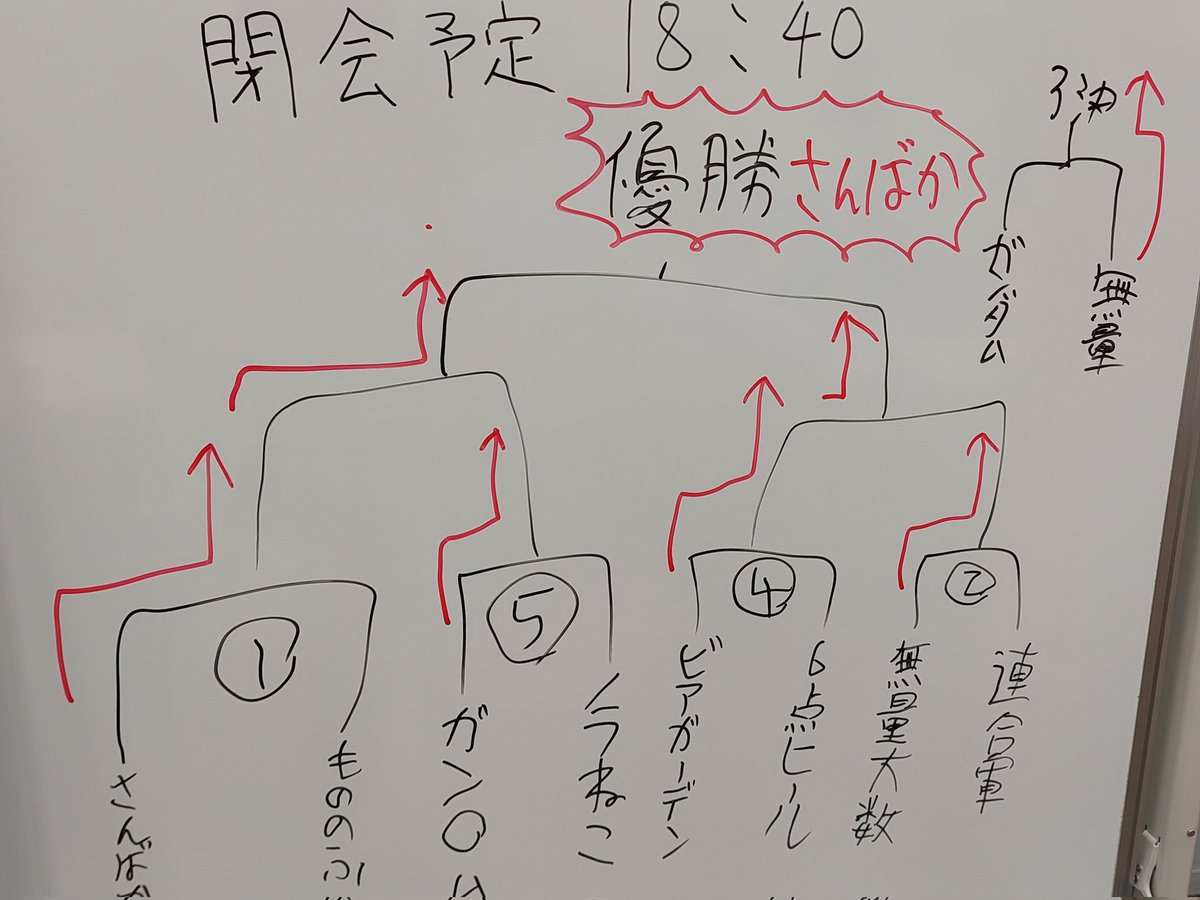 閉会予定 18:40
優勝 さんばか
3決
ガンダム
無量
①
⑤
④
②
さんばか
もののふ
ガン〇
ノラねこ
ビアガーデン
6点ヒール
無量大数
連合軍